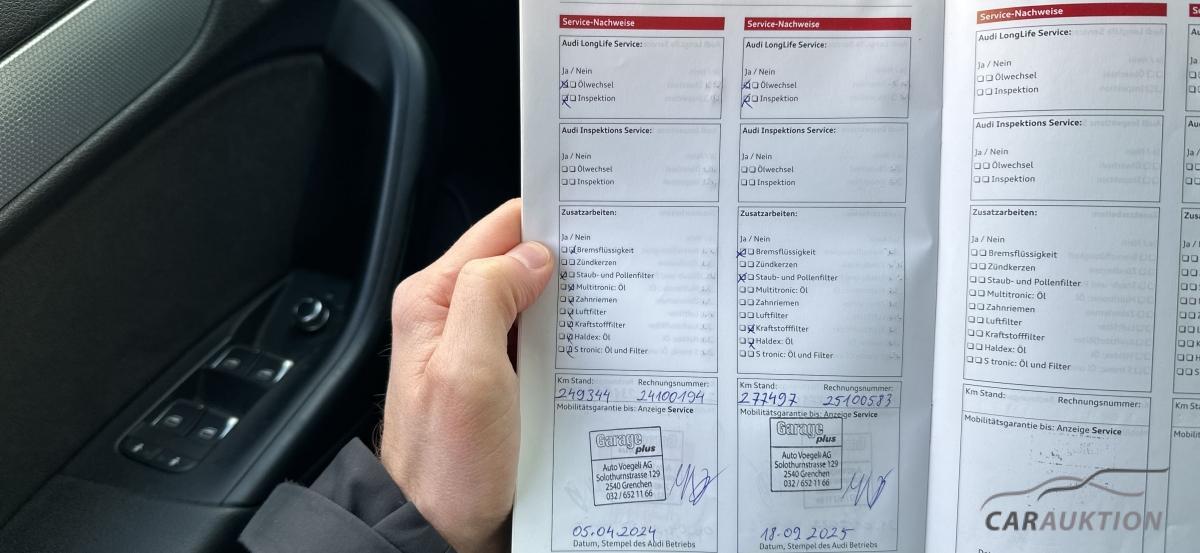 Service-Nachweise
Audi LongLife Service:
Ja / Nein
Ölwechsel
Inspektion
Audi Inspektions Service:
Ja / Nein
Ölwechsel
Inspektion
Zusatzarbeiten:
Ja / Nein
Bremsflüssigkeit
Zündkerzen
Staub- und Pollenfilter
Multitronic: Öl
Zahnriemen
Luftfilter
Kraftstofffilter
Haldex: Öl
S tronic: Öl und Filter
Km Stand: Rechnungsnummer:
249344 24100194
Mobilitätsgarantie bis: Anzeige Service
Garage
plus
Auto Voegeli AG
Solothurnstrasse 129
2540 Grenchen
032 / 652 11 66
05.04.2024
Datum, Stempel des Audi Betriebs
Service-Nachweise
Audi LongLife Service:
Ja / Nein
Ölwechsel
Inspektion
Audi Inspektions Service:
Ja / Nein
Ölwechsel
Inspektion
Zusatzarbeiten:
Ja / Nein
Bremsflüssigkeit
Zündkerzen
Staub- und Pollenfilter
Multitronic: Öl
Zahnriemen
Luftfilter
Kraftstofffilter
Haldex: Öl
S tronic: Öl und Filter
Km Stand: Rechnungsnummer:
277497 25100583
Mobilitätsgarantie bis: Anzeige Service
Garage
plus
Auto Voegeli AG
Solothurnstrasse 129
2540 Grenchen
032 / 652 11 66
18.09.2025
Datum, Stempel des Audi Betriebs
Service-Nachweise
Audi LongLife Service:
Ja / Nein
Ölwechsel
Inspektion
Audi Inspektions Service:
Ja / Nein
Ölwechsel
Inspektion
Zusatzarbeiten:
Ja / Nein
Bremsflüssigkeit
Zündkerzen
Staub- und Pollenfilter
Multitronic: Öl
Zahnriemen
Luftfilter
Kraftstofffilter
Haldex: Öl
S tronic: Öl und Filter
Km Stand: Rechnungsnummer:
Mobilitätsgarantie bis: Anzeige Service
CARAUKTION